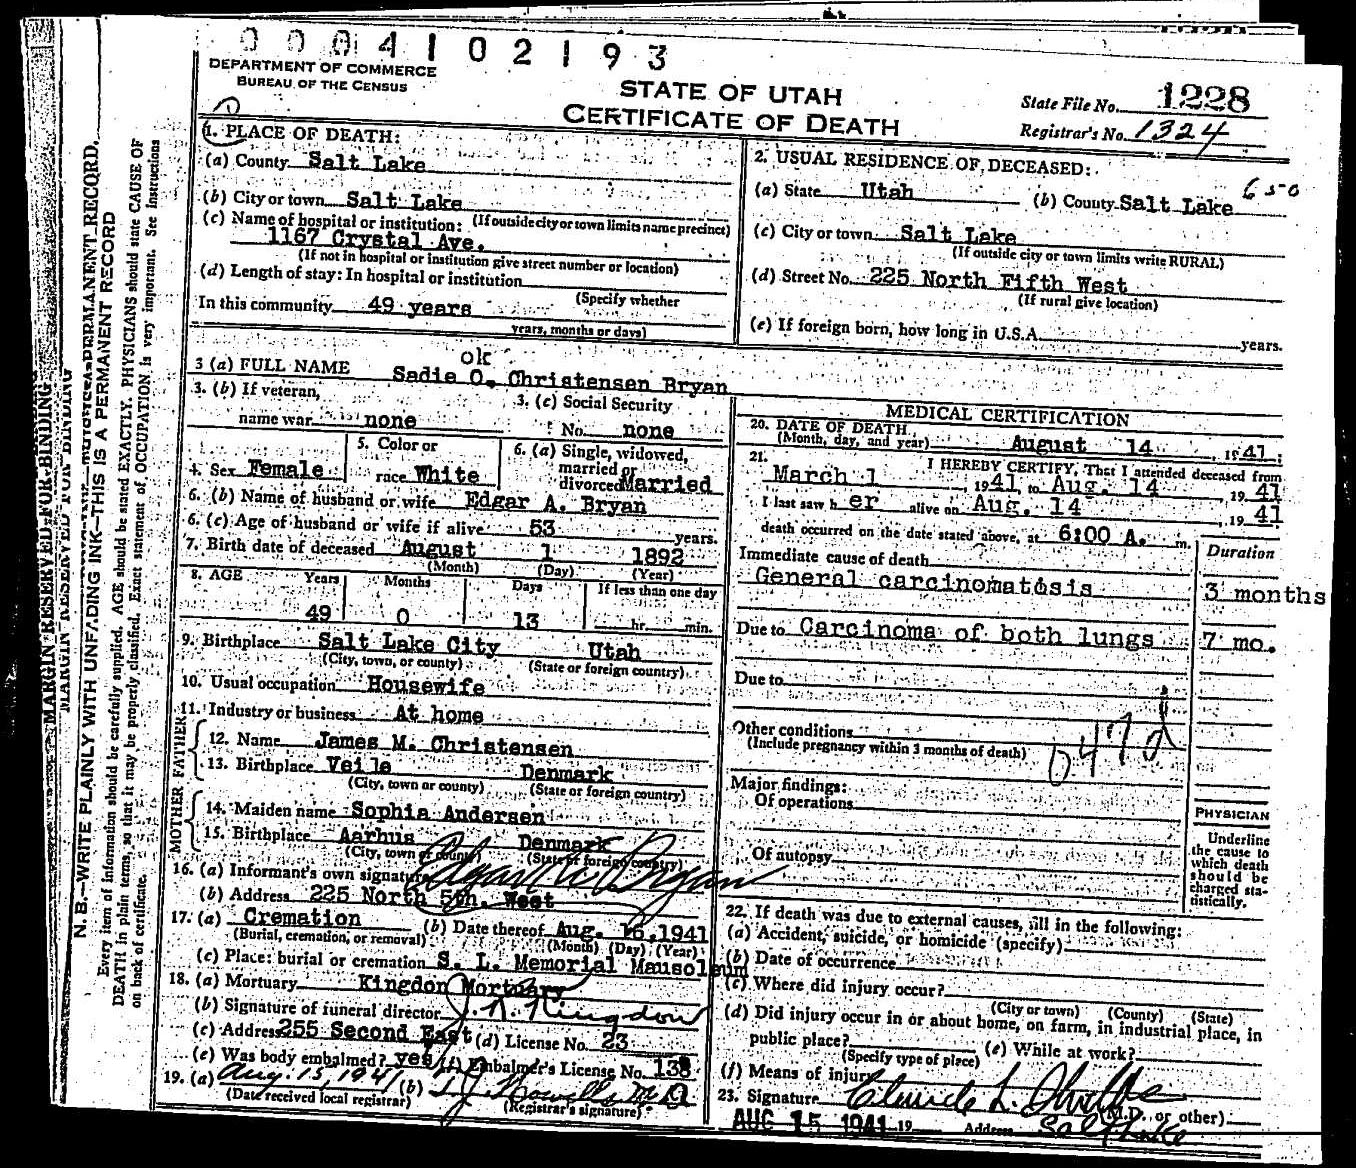 0004102193
DEPARTMENT OF COMMERCE
BUREAU OF THE CENSUS
STATE OF UTAH
CERTIFICATE OF DEATH
State File No. 1228
Registrar's No. 1324
1. PLACE OF DEATH:
(a) County Salt Lake
(b) City or town Salt Lake
(c) Name of hospital or institution: (If outside city or town limits name precinct)
1167 Crystal Ave.
(If not in hospital or institution give street number or location)
(d) Length of stay: In hospital or institution
(Specify whether
In this community 49 years
years, months or days)
2. USUAL RESIDENCE OF DECEASED:
(a) State Utah (b) County Salt Lake 650
(c) City or town Salt Lake
(If outside city or town limits write RURAL)
(d) Street No. 225 North Fifth West
(If rural give location)
(e) If foreign born, how long in U.S.A. years.
ok
3 (a) FULL NAME Sadie O. Christensen Bryan
3. (b) If veteran, 3. (c) Social Security
name war none No. none
4. Sex Female 5. Color or race White 6. (a) Single, widowed, married or divorced Married
6. (b) Name of husband or wife Edgar A. Bryan
6. (c) Age of husband or wife if alive 53 years.
7. Birth date of deceased August 1 1892
(Month) (Day) (Year)
8. AGE Years Months Days If less than one day
49 0 13 hr. min.
9. Birthplace Salt Lake City Utah
(City, town, or county) (State or foreign country)
10. Usual occupation Housewife
11. Industry or business At home
FATHER
12. Name James M. Christensen
13. Birthplace Veile Denmark
(City, town or county) (State or foreign country)
MOTHER
14. Maiden name Sophia Andersen
15. Birthplace Aarhus Denmark
(City, town or county) (State or foreign country)
16. (a) Informant's own signature Bryan
(b) Address 225 North 5th. West
17. (a) Cremation (b) Date thereof Aug. 16, 1941
(Burial, cremation, or removal) (Month) (Day) (Year)
(c) Place: burial or cremation S. L. Memorial Mausoleum
18. (a) Mortuary Kingdon Mortuary
(b) Signature of funeral director J. N. Kingdon
(c) Address 255 Second East (d) License No. 23
(e) Was body embalmed? yes (f) Embalmer's License No. 138
19. (a) Aug. 15, 1941 (b) M D
(Date received local registrar) (Registrar's signature)
MEDICAL CERTIFICATION
20. DATE OF DEATH
(Month, day, and year) August 14, 1941;
21. I HEREBY CERTIFY, That I attended deceased from
March 1, 1941 to Aug. 14, 1941
I last saw her alive on Aug. 14, 1941
death occurred on the date stated above, at 6:00 A. m.
Immediate cause of death Duration
General carcinomatosis 3 months
Due to Carcinoma of both lungs 7 mo.
Due to
Other conditions
(Include pregnancy within 3 months of death)
047d
Major findings:
Of operations
Of autopsy
PHYSICIAN
Underline
the cause to
which death
should be
charged sta-
tistically.
22. If death was due to external causes, fill in the following:
(a) Accident, suicide, or homicide (specify)
(b) Date of occurrence
(c) Where did injury occur?
(City or town) (County) (State)
(d) Did injury occur in or about home, on farm, in industrial place, in
public place? (e) While at work?
(Specify type of place)
(f) Means of injury
23. Signature Claude L. (M.D. or other)
AUG 15 1941 19 Address Salt Lake
MARGIN RESERVED FOR BINDING
MARGIN RESERVED FOR BINDING
N. B.—WRITE PLAINLY WITH UNFADING INK—THIS IS A PERMANENT RECORD.
Every item of information should be carefully supplied. AGE should be stated EXACTLY. PHYSICIANS should state CAUSE OF
DEATH in plain terms, so that it may be properly classified. Exact statement of OCCUPATION is very important. See Instructions
on back of certificate.